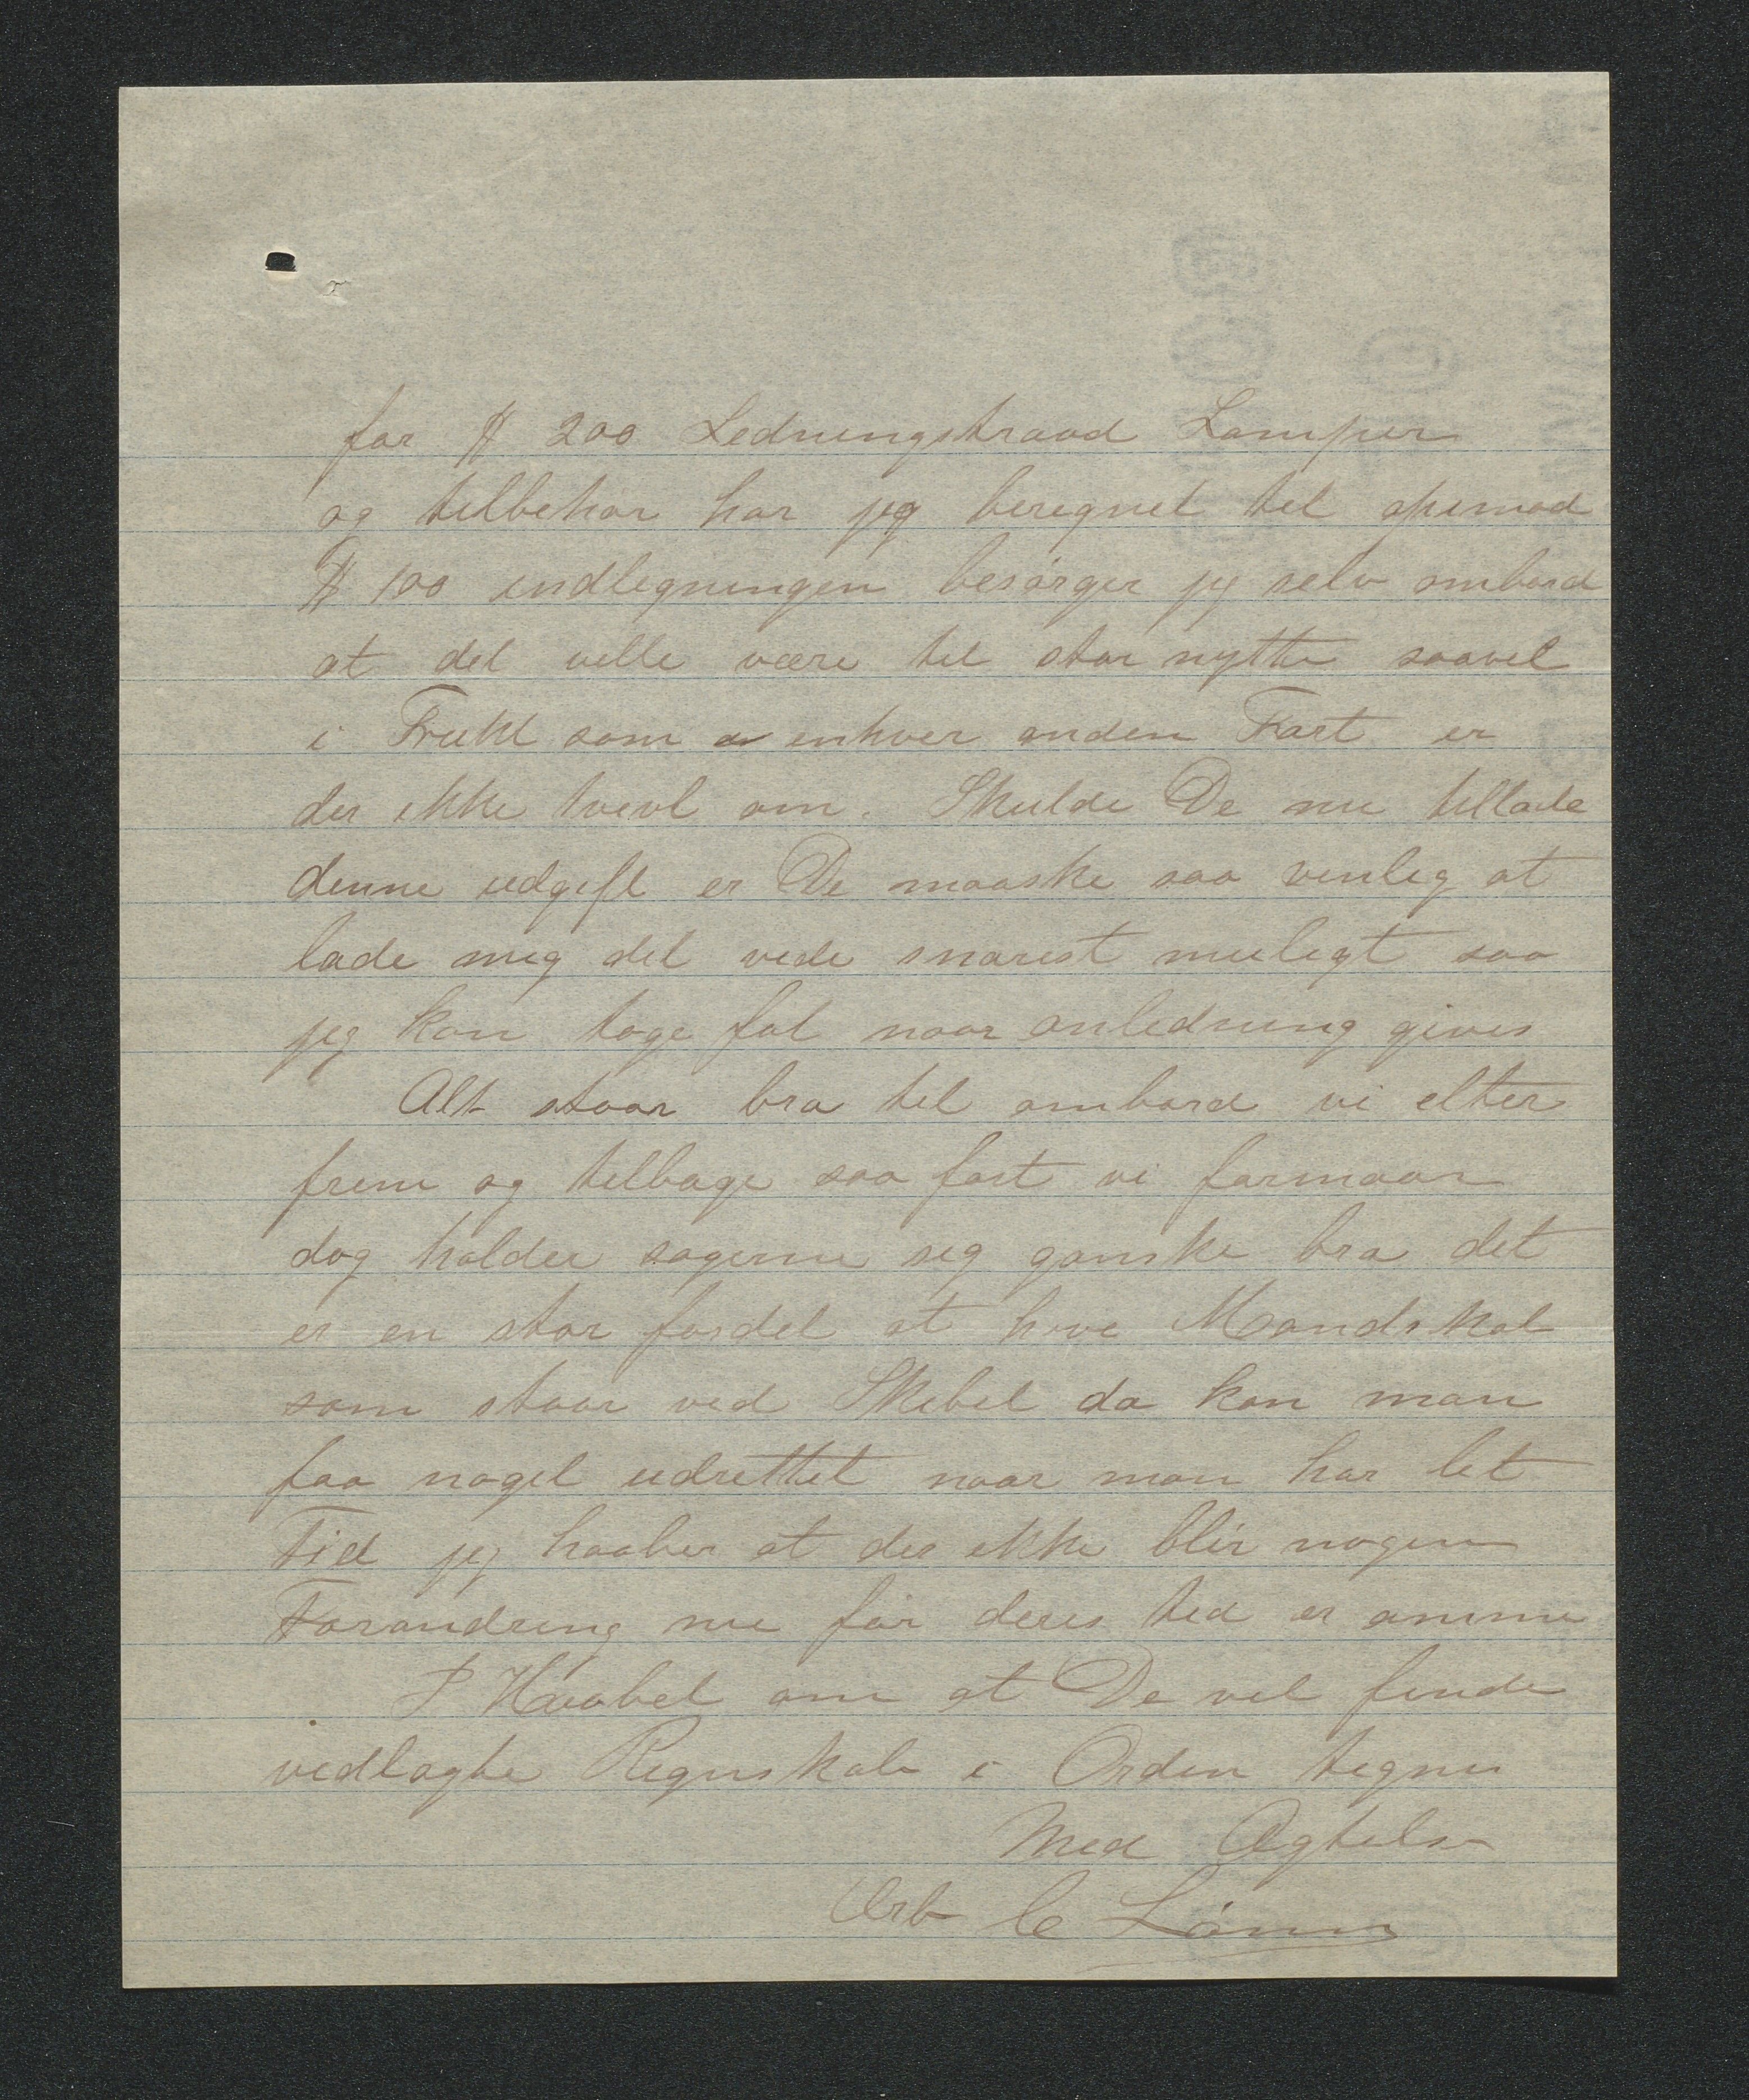 for $ 200 Ledningstraad Lamper
og tilbehør har jeg beregnet til
$ 100 indlegningen besørger jeg selv ombord
at det ville være til stor nytte saavel
i Frukt som enhver anden Fart er
der ikke tvevl om. Skulde De nu tillade
denne udgift er De maaske saa venlig at
lade mig det vede snarest muligt saa
jeg kan tage fat naar anledning gives
Alt staar bra til ombord vi elter
frem og tilbage saa fort vi formaar
dog holder sagerne sig ganske bra det
er en stor fordel at have Mandskab
som staar ved Skibet da kan man
faa noget udrettet naar man har let
Tid jeg haaber at der ikke blir nogen
Forandring nu før deres tid er omme
I Haabet om at De vil finde
vedlagte Regnskab i Orden tegner
Med Agtelse
Ærb C Lønn